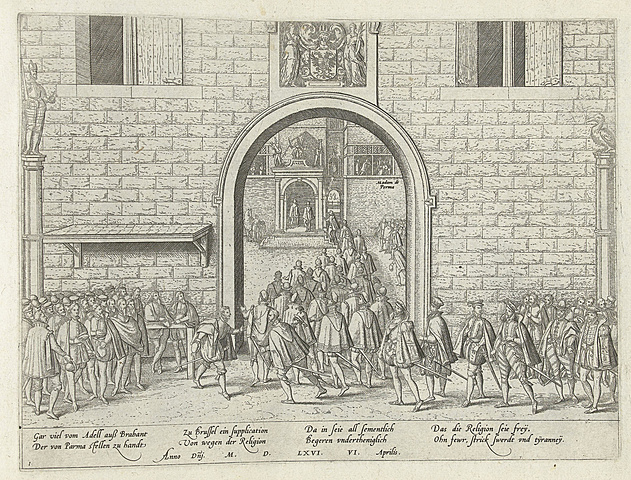 Madam de
Parma
Gar viel vom Adell auß Brabant
Der von Parma stellen zu handt
Zu Brussel ein supplication
Von wegen der Religion
Da in seie all sementlich
Begeren underthenighlich
Das die Religion seie frey.
Ohn fewr, strick swerdt und tÿranneÿ.
Anno Dñj. M. D. LXVI. VI Aprilis.
1